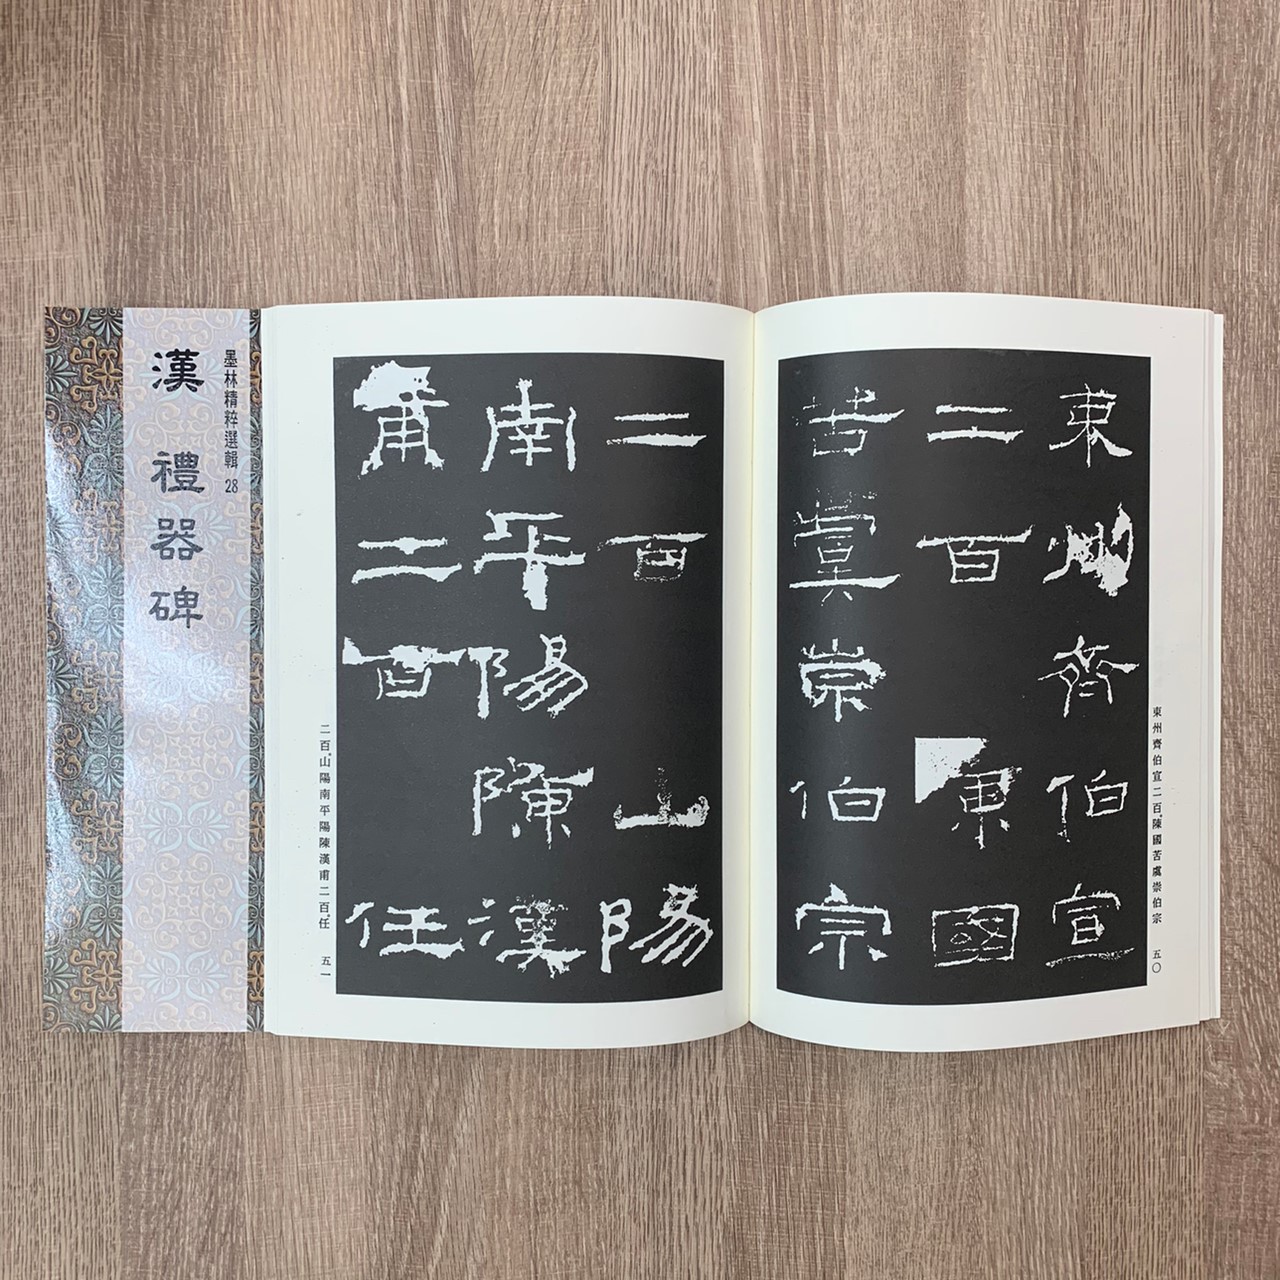 墨林精粹選輯 28
漢 禮器碑
東州齊伯宣
二百 陳國
苦虞崇伯宗
東州齊伯宣二百。陳國苦虞崇伯宗 五〇
二百 山陽
南平陽陳漢
甫二百 任
二百。山陽南平陽陳漢甫二百。任 五一